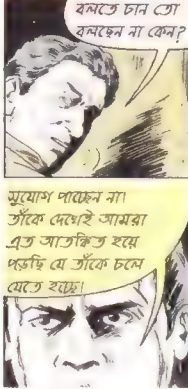 বলতে চান তো
বলছেন না কেন?
সুযোগ পাচ্ছেন না!
তাঁকে দেখেই আমরা
এত আতঙ্কিত হয়ে
পড়ছি যে তাঁকে চলে
যেতে হচ্ছে!